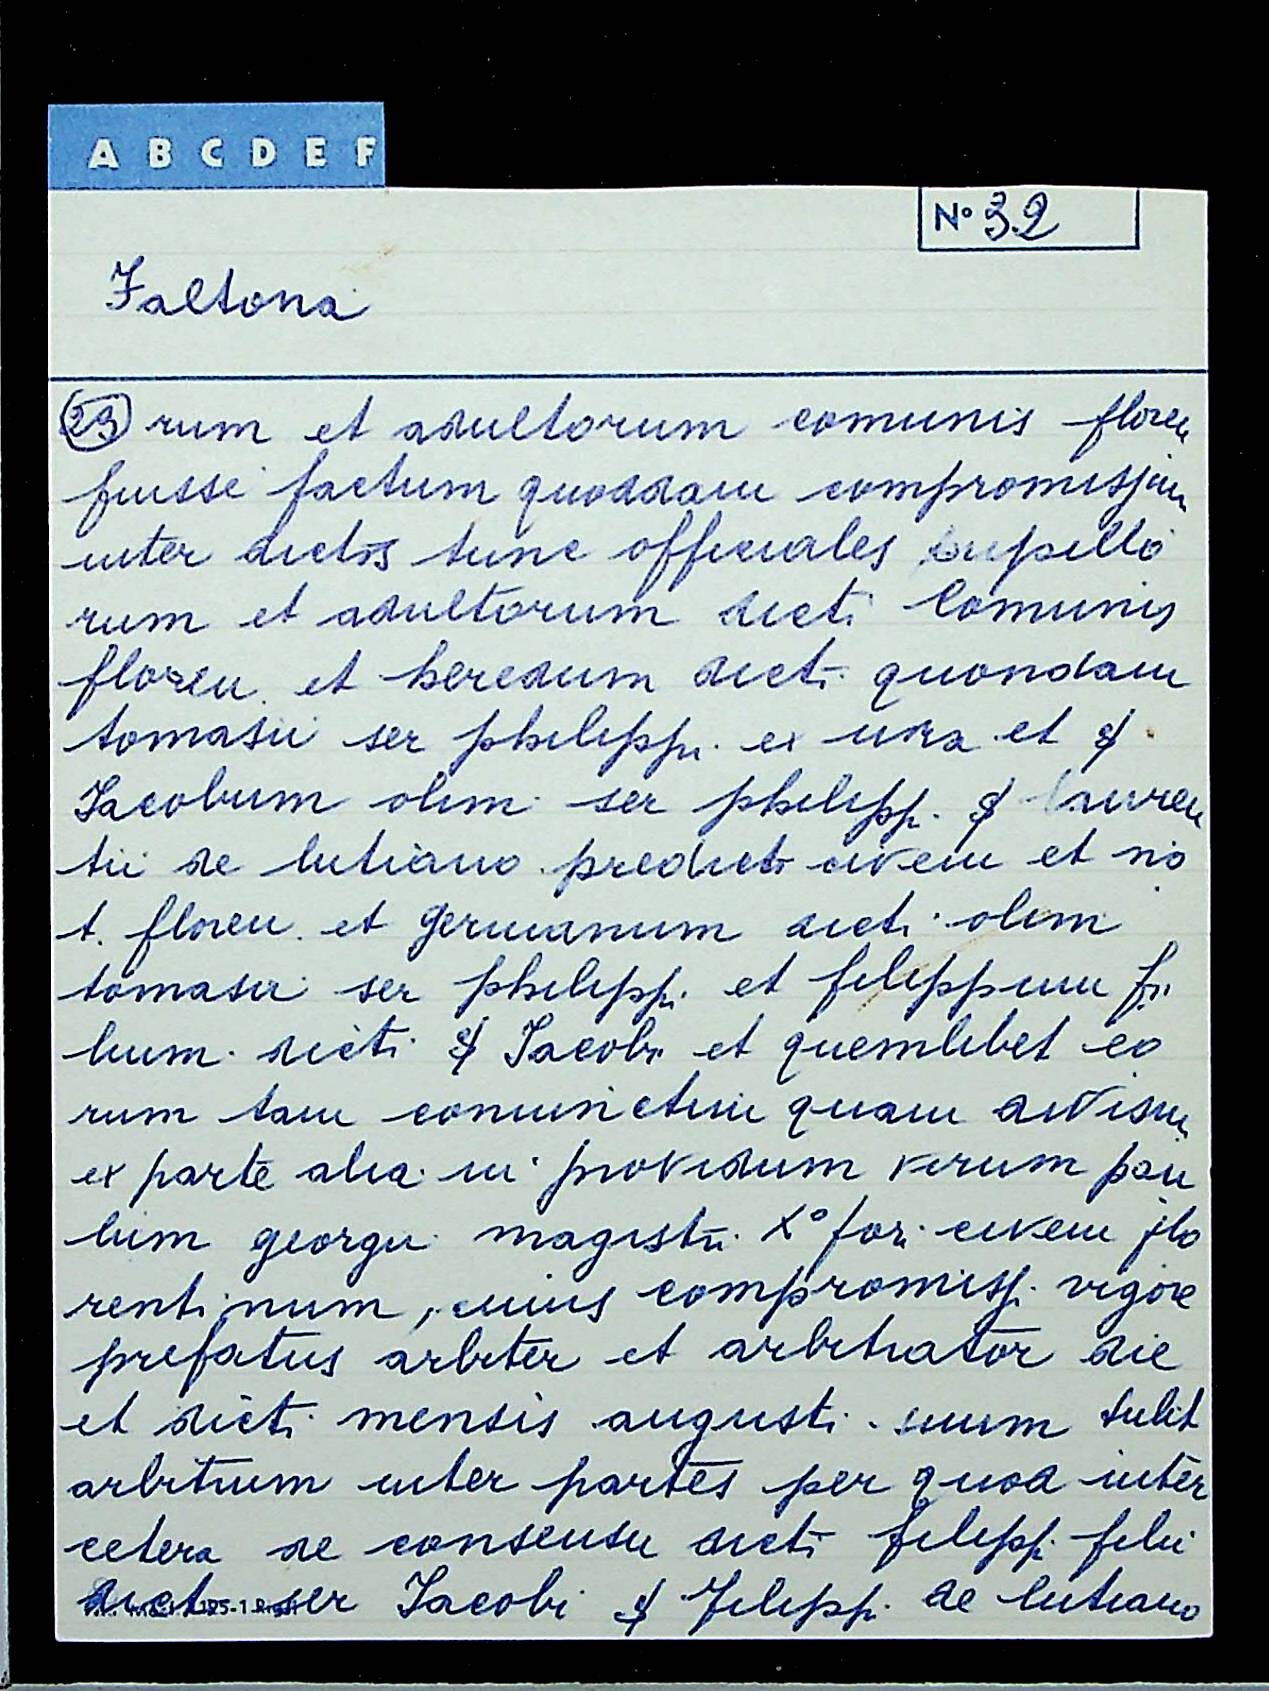 A B C D E F
N° 32
Faltona
23 rum et adultorum comunis floren
fuisse factum quoddam compromissum
inter dictos tunc officiales pupillo
rum et adultorum dicti Comunis
floren. et heredum dicti quondam
tomasii ser philippi. ex una et §
Iacobum olim ser philipp. § lauren
tii de lutiano predicti civem et no
t. floren. et germanum dicti olim
tomasii ser philippi. et filippum fi
lium dicti § Iacobi et quemlibet eo
rum tam coniunctim quam divisim
ex parte alia in providum virum pau
lum georgii magistri X° fori civem flo
rentinum, cuius compromissi. vigore
prefatus arbiter et arbitrator die
et dicti mensis augusti suum tulit
arbitrium inter partes per quod inter
cetera de consensu dicti filippi filii
dicti ser Iacobi § filippi. de lutiano